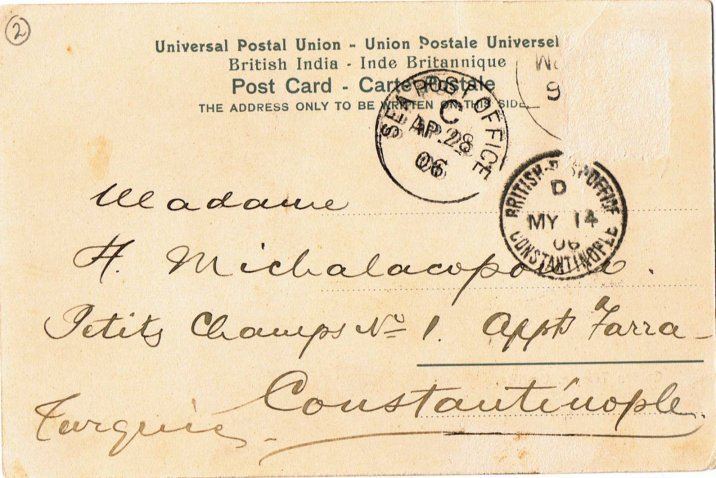 2
Universal Postal Union - Union Postale Universel
British India - Inde Britannique
Post Card - Carte Postale
THE ADDRESS ONLY TO BE WRITTEN ON THIS SIDE
SEA POST OFFICE
C
AP. 28
06
9
BRITISH POST OFFICE
D
MY 14
06
CONSTANTINOPLE
Madame
H. Michalacopoulo.
Petits Champs No 1. Appts Farra-
Constantinople.
Turquie